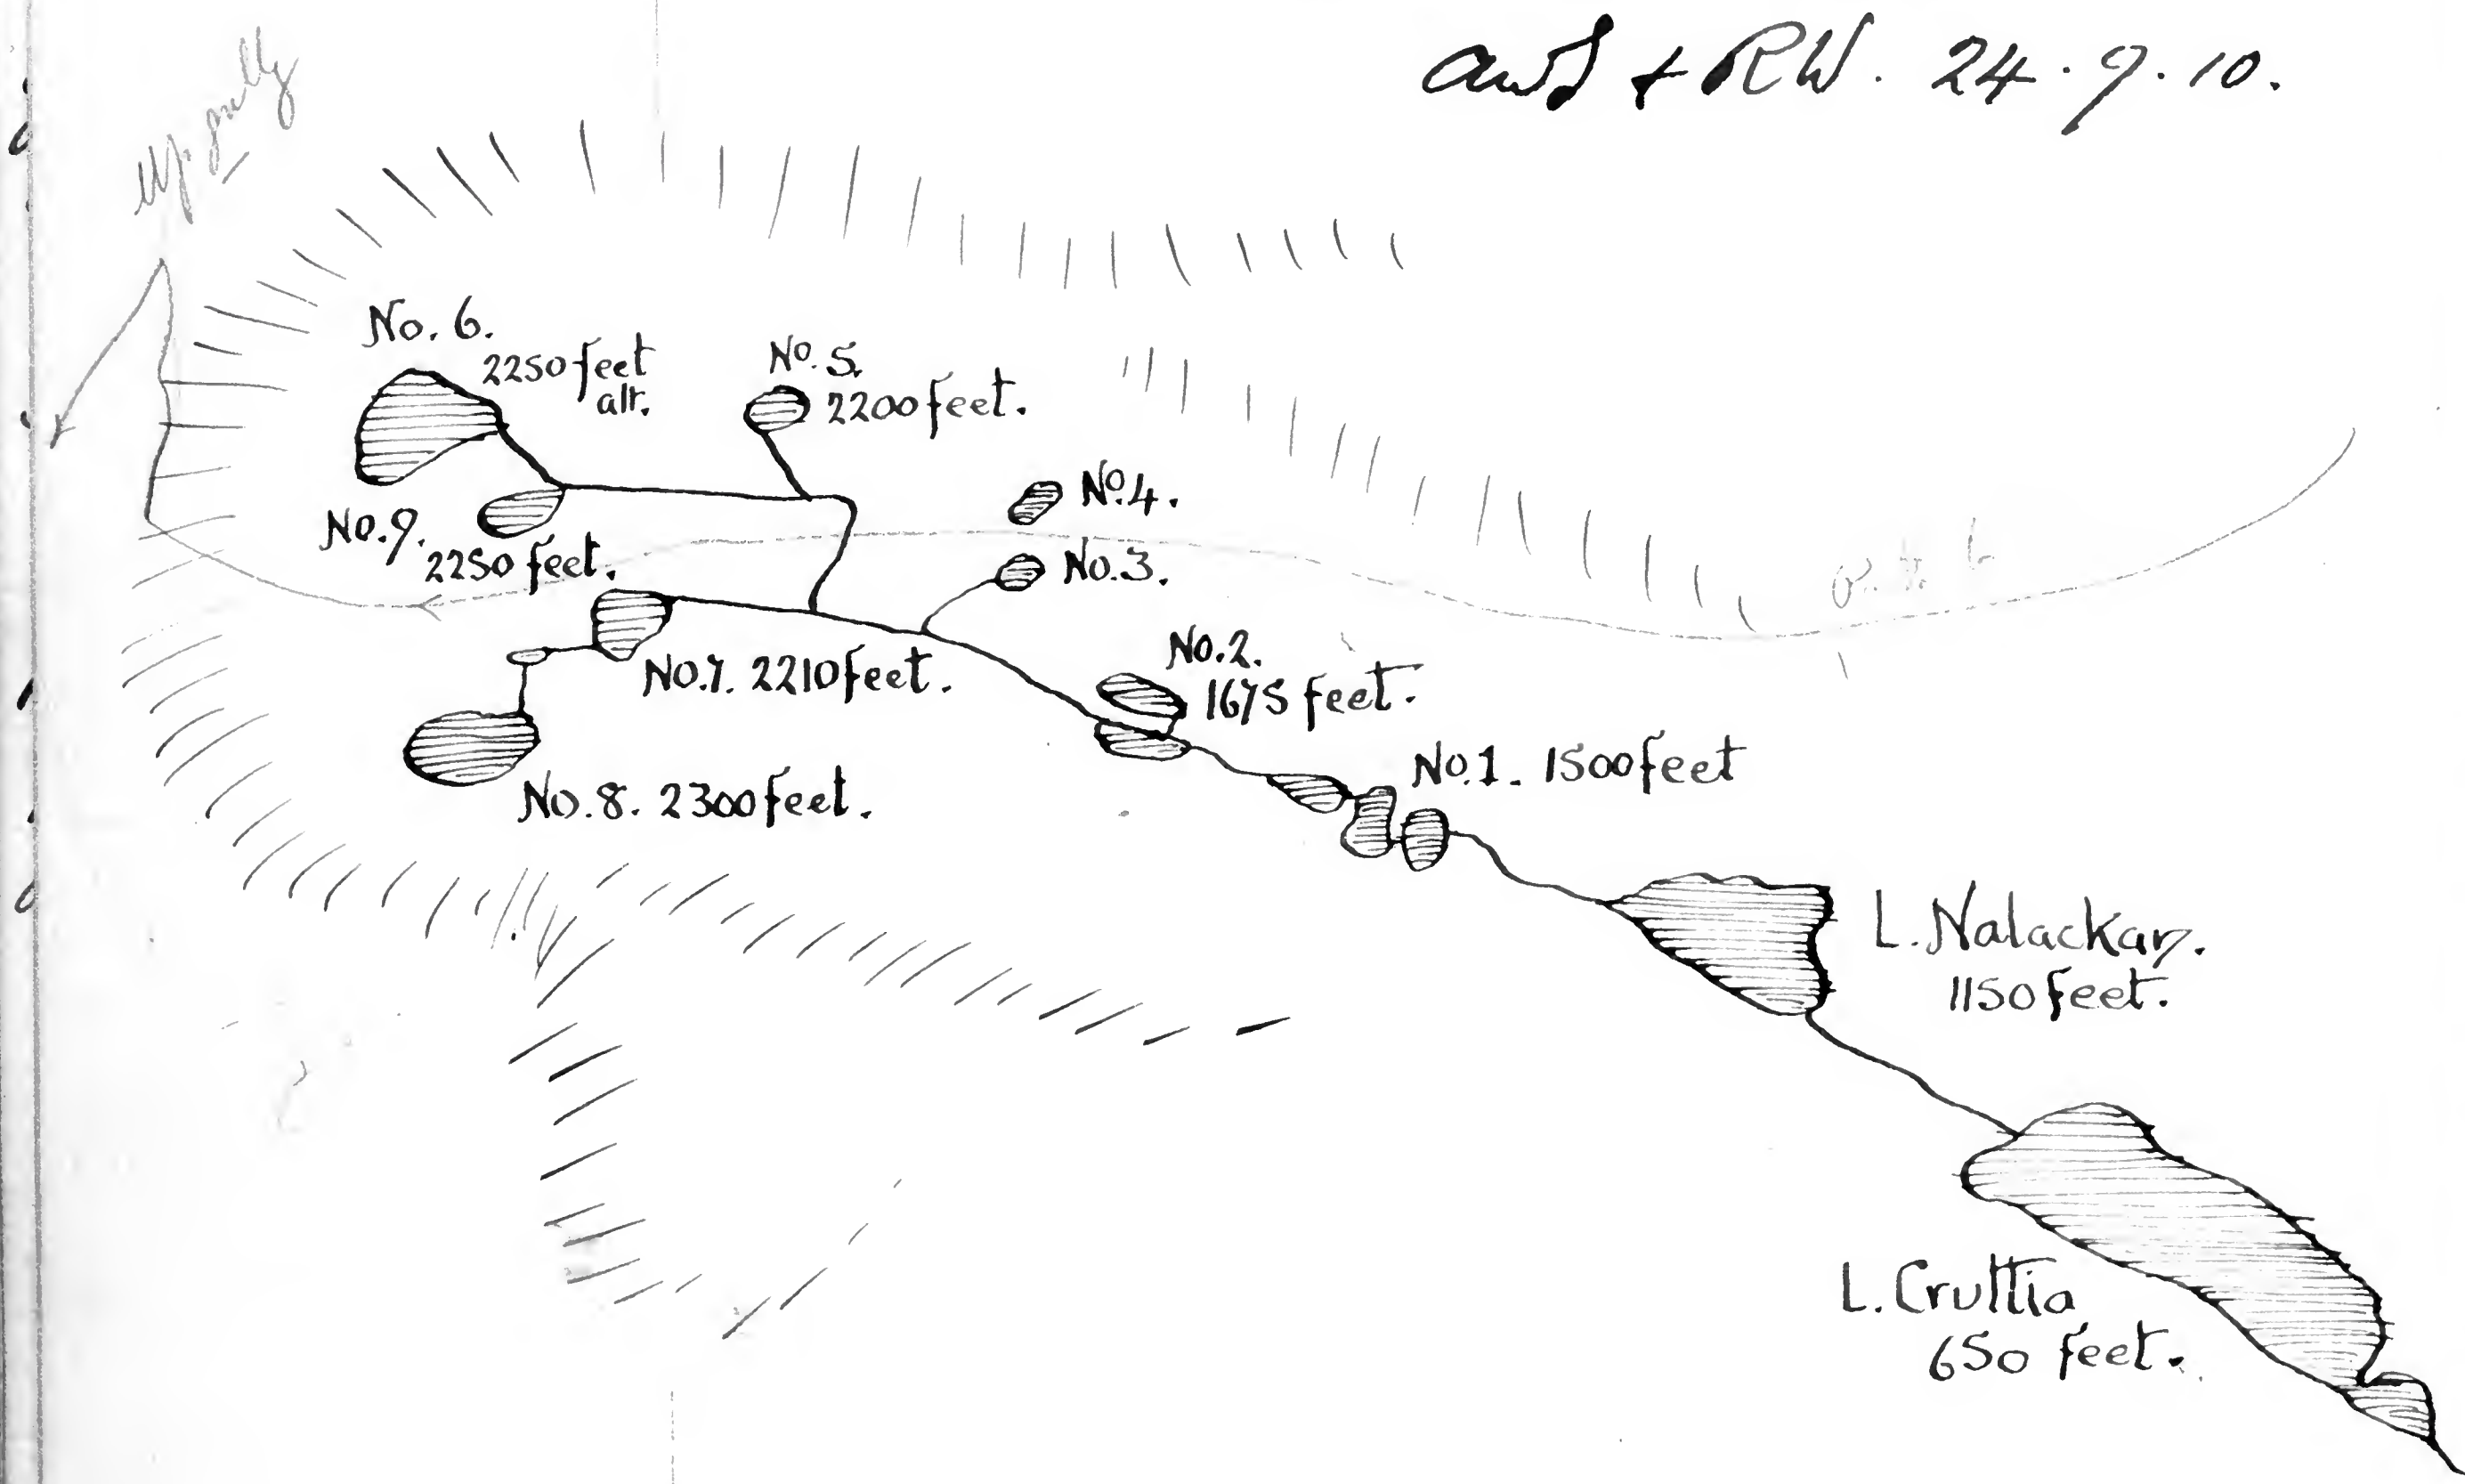 AWS + RW. 24.9.10.
Up gully
No. 6.
2250 feet
alt.
No. 5.
2200 feet.
No. 4.
No. 9.
2250 feet.
No. 3.
No. 2.
1675 feet.
No. 7. 2210 feet.
No. 1. 1500 feet
No. 8. 2300 feet.
L. Nalackan.
1150 feet.
L. Cruttia
650 feet.